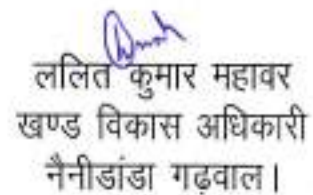 ललित कुमार महावर
खण्ड विकास अधिकारी
नैनीडांडा गढ़वाल।